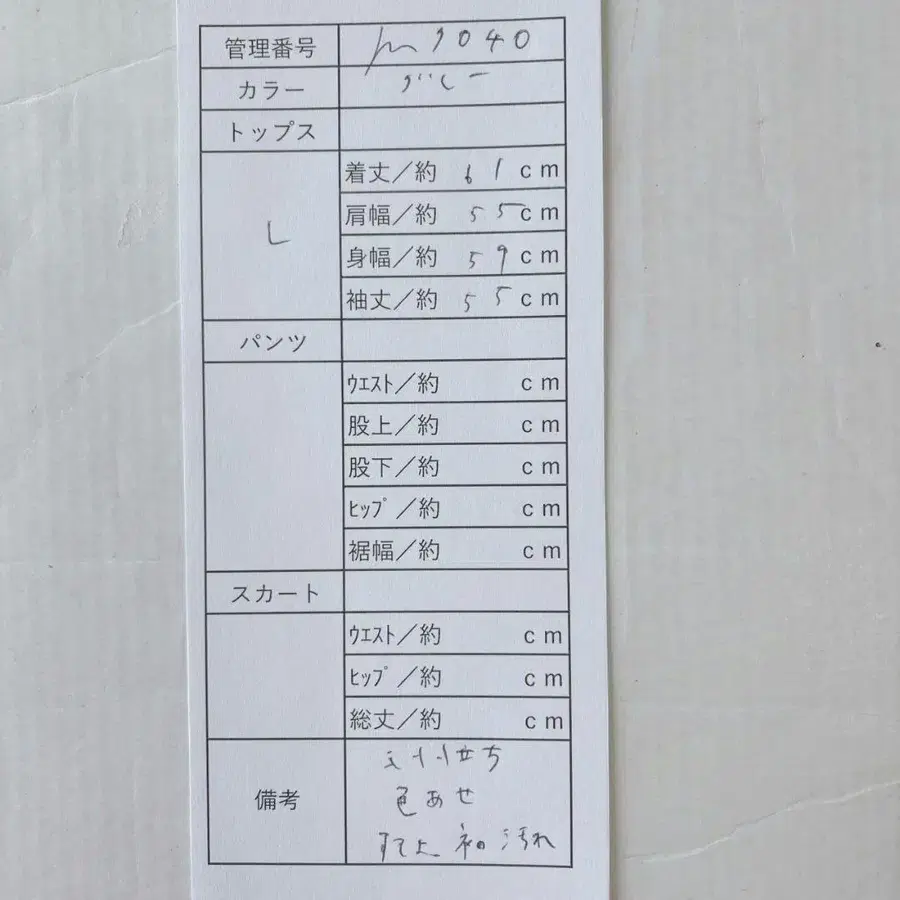 管理番号 m9040
カラー グレー
トップス
L
着丈／約 61 cm
肩幅／約 55 cm
身幅／約 59 cm
袖丈／約 55 cm
パンツ
ウエスト／約 cm
股上／約 cm
股下／約 cm
ヒップ／約 cm
裾幅／約 cm
スカート
ウエスト／約 cm
ヒップ／約 cm
総丈／約 cm
備考
立ち
色あせ
袖 汚れ